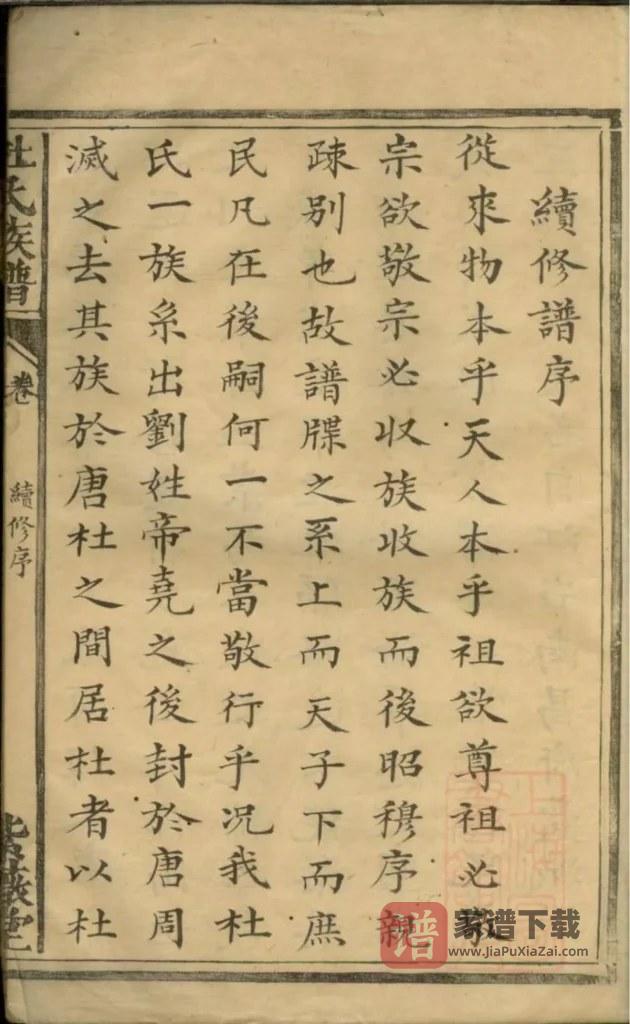 續修譜序
從來物本乎天人本乎祖欲尊祖必敬
宗欲敬宗必収族收族而後昭穆序親
疎别也故譜牒之系上而天子下而庶
民凡在後嗣何一不當敬行乎况我杜
氏一族系出劉姓帝堯之後封於唐周
滅之去其族於唐杜之間居杜者以杜
杜氏族譜
卷
續修序
堂
谱 家谱下载
www.JiaPuXiaZai.com